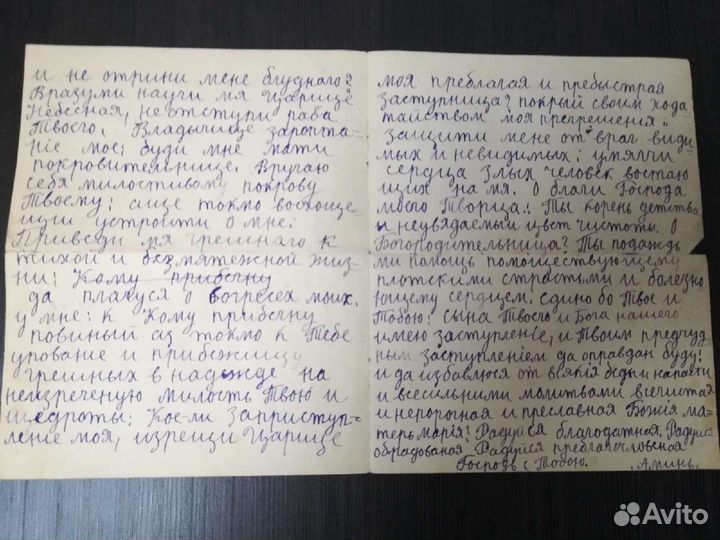 и не отрини мене блуднаго?
Вразуми научи мя Царице
Небесная, не отступи раба
Твоего, Владычице
мое: буди мне мати
покровительнице. Вручаю
себя милостивому покрову
Твоему: аще токмо восхоще
еши устроити о мне:
Приведи мя грешнаго к
тихой и безмятежной жиз
ни: Кому прибегну
да плачуся о вогресех моих.
у мне: к Кому прибегну
повиный аз токмо к Тебе
упование и прибежищи
грешных в надежде на
неизреченую милость Твою и
щедроты: изрещи Царице
моя преблагая и пребыстрая
заступница? покрый своим хода
тайством моя прегрешения.
Защити мене от враг види
мых и невидимых: умягчи
сердца злых человек востаю
щих на мя. О благи Господа
моего Творца.: Ты корень детства
и неувядаемый цвет чистоты. О
Богородительница? Ты подаждь
ми помощь
плотскими страстьми и болезно
ющему сердцем. едино бо Твое и
Тобою: сына Твоего и Бога нашего
имею заступленіе, и Твоим предчуд
ным заступлением да оправдан буду:
и да избавлюся от всякія беды и напасти
и всесильными молитвами всечистая
и непорочная и преславная Божія ма-
терь марія? Радуйся благодатная. Радуйся
обрадованая Радуйся
Господь с Тобою. Аминь.
Avito